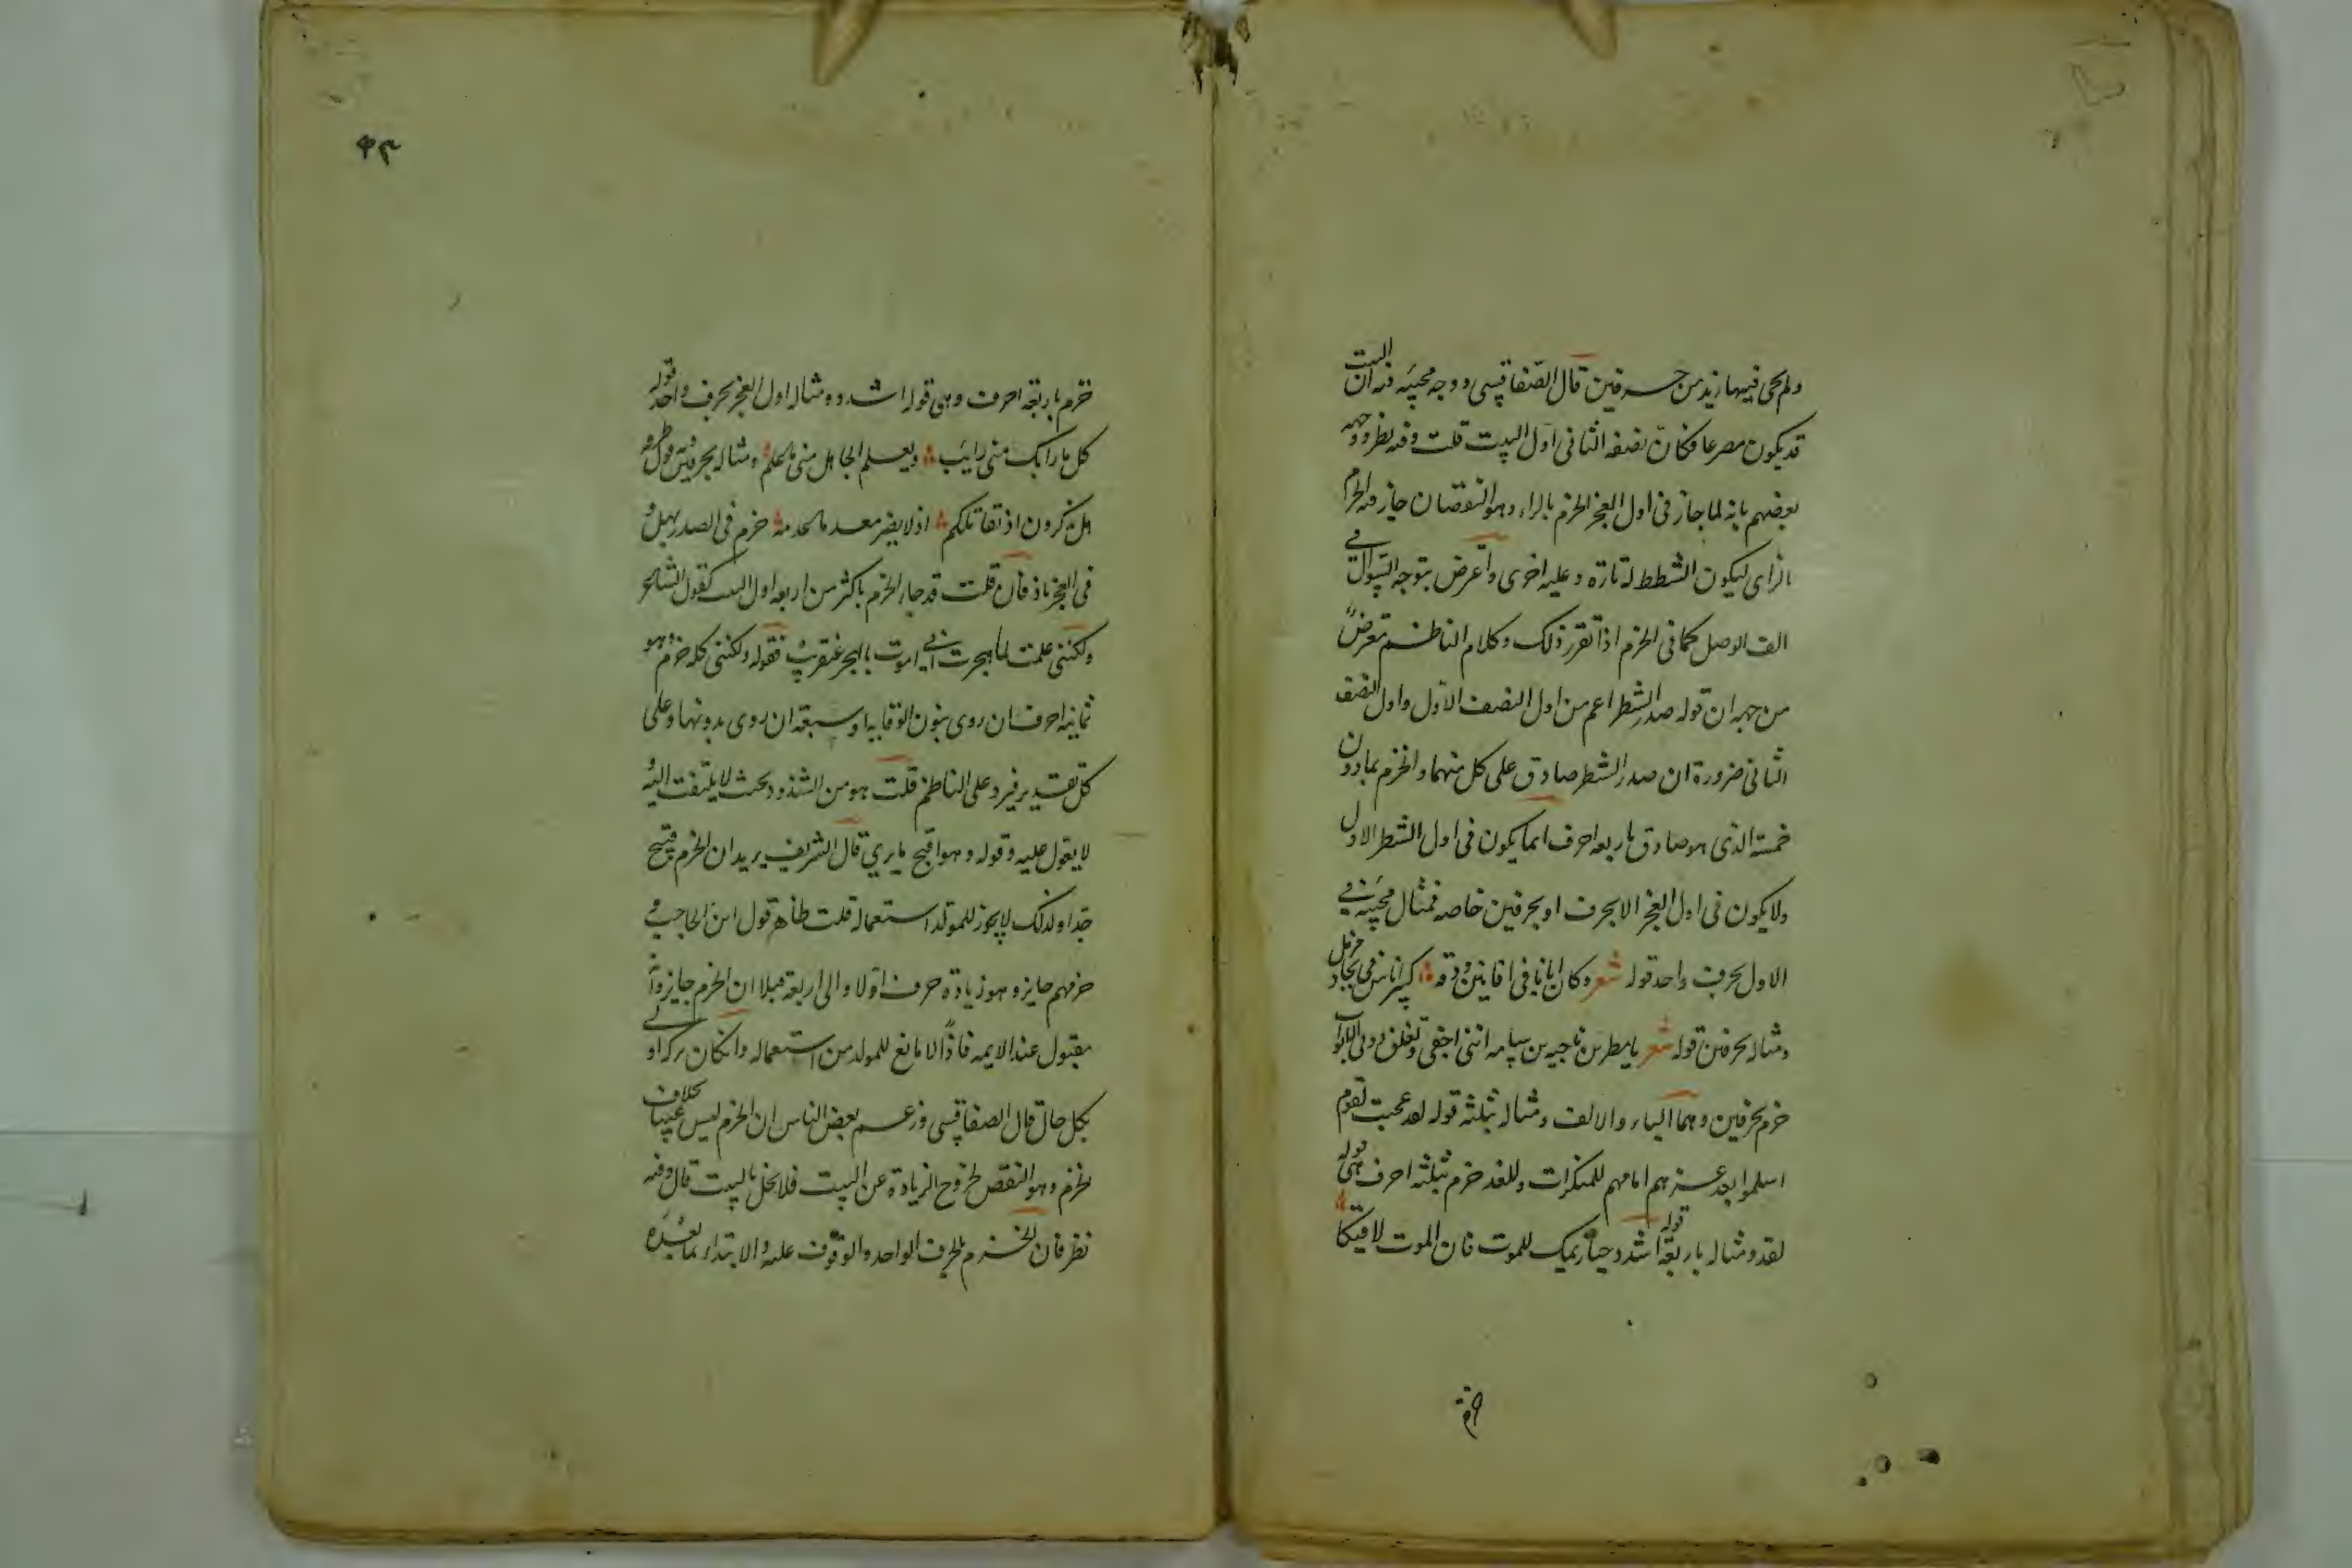 ولم يجئ فيها ازيد من حرفين قال الصفاقسي ووجه مجيئه فيه ان البيت
قد يكون مصرعا فكان نصفه الثاني اول البيت قلت وفيه نظر ووجهه
بعضهم بانه لما جاز في اول العجز الخرم بالراء وهو النقصان جاز فيه الخزم
بالزاي ليكون الشطط له تارة وعليه اخرى واعرض بتوجه السؤال في
الف الوصل كما في الخزم اذا تقرر ذلك وكلام الناظم معرض
من جهة ان قوله صدر الشطر اعم من اول النصف الاول واول النصف
الثاني ضرورة ان صدر الشطر صادق على كل منهما والخزم بما دون
خمسة الذي هو صادق باربعة احرف انما يكون في اول الشطر الاول
ولا يكون في اول العجز الا بحرف او بحرفين خاصة فمثال مجيئه في
الاول بحرف واحد قوله شعر وكان ابانا في افانين ودقه كبير اناس في بجاد مزمل
ومثاله بحرفين قوله شعر يا مطر بن ناجية بن سامة انني اجفى وتغلق دوني الابواب
خزم بحرفين وهما الياء والالف ومثاله بثلثة قوله لقد عجبت لقوم
اسلموا بعد عزهم امامهم للمنكرات وللغدر خزم بثلثة احرف هي قوله
لقد ومثاله باربعة قوله اشدد حيازيمك للموت فان الموت لاقيكا
خزم باربعة احرف وهي قوله اشدد ومثاله اول العجز بحرف واحد قوله
كل ما رابك مني رايب ويعلم الجاهل مني ما علم ومثاله بحرفين قول
هل تذكرون اذ نقاتلكم اذ لا يضر معدما عدمه خزم في الصدر بهل و
في العجز باذ فان قلت قد جاء الخزم باكثر من اربعة اول البيت كقول الشاعر
ولكنني علمت لما هجرت اني اموت بالهجر عن قريب فقوله ولكنني كله خزم وهو
ثمانية احرف ان روي بنون الوقاية او سبعة ان روي بدونها وعلى
كل تقدير فيرد على الناظم قلت هو من الشذوذ بحيث لا يلتفت اليه و
لا يعول عليه وقوله وهو اقبح ما يرى قال الشريف يريد ان الخزم قبيح
جدا ولذلك لا يجوز للمولد استعماله قلت ظاهر قول ابن الحاجب و
خزمهم جايز وهو زيادة حرف اولا والى اربعة قبلا ان الخزم جايز وانه
مقبول عند الايمة فاذا لا مانع للمولد من استعماله وان كان تركه اولى
بكل حال قال الصفاقسي وزعم بعض الناس ان الخزم ليس عيبا بخلاف
الخرم وهو النقص لخروج الزيادة عن البيت فلا يخل بالبيت قال وفيه
نظر فان الخزم بالحرف الواحد والوقوف عليه والابتداء بما بعده